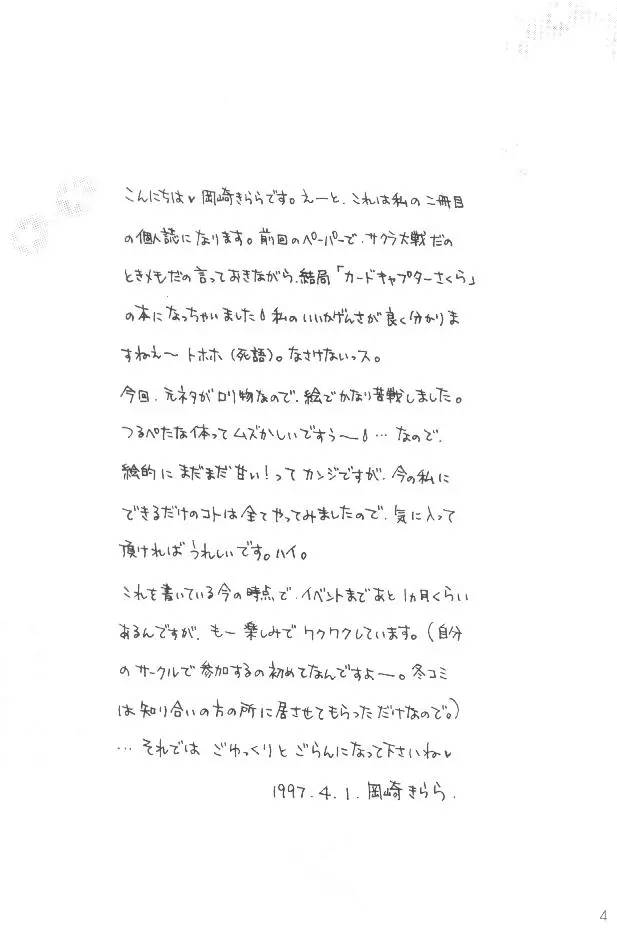 こんにちは♥岡崎きららです。えーと、これは私の二冊目
の個人誌になります。前回のペーパーで、サクラ大戦だの
ときメモだの言っておきながら、結局「カードキャプターさくら」
の本になっちゃいました 私のいいかげんさが良く分かりま
すねえ〜 トホホ（死語）。なさけないっス。
今回、元ネタがロリ物なので、絵でかなり苦戦しました。
つるぺたな体ってムズかしいですぅ〜 …なので、
絵的にまだまだ甘い！ってカンジですが、今の私に
できるだけのコトは全てやってみましたので、気に入って
頂ければうれしいです。ハイ。
これを書いている今の時点で、イベントまであと1ヵ月くらい
あるんですが、もー楽しみでワクワクしています。（自分
のサークルで参加するの初めてなんですよー。冬コミ
は知り合いの方の所に居させてもらっただけなので。）
…それでは ごゆっくりと ごらんになって下さいね♥
1997.4.1.岡崎きらら.
4